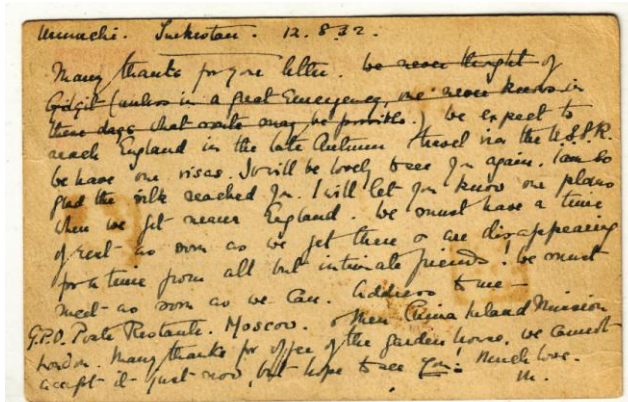 Urumchi. Turkestan. 12.8.32.
Many thanks for your letter. We never thought of
Gilgit (unless in a great Emergency, one never knows in
these days what route may be possible.) We expect to
reach England in the late Autumn & travel via the U.S.S.R.
We have our visas. It will be lovely to see you again. I am so
glad the silk reached you. I will let you know our plans
when we get nearer England. We must have a time
of rest as soon as we get there & are disappearing
for a time from all but intimate friends! We must
meet as soon as we can. Address to me
G.P.O. Poste Restante. Moscow. & then China Inland Mission
London. Many thanks for offer of the garden house, we cannot
accept it just now, but hope to see you! Much love.
M.